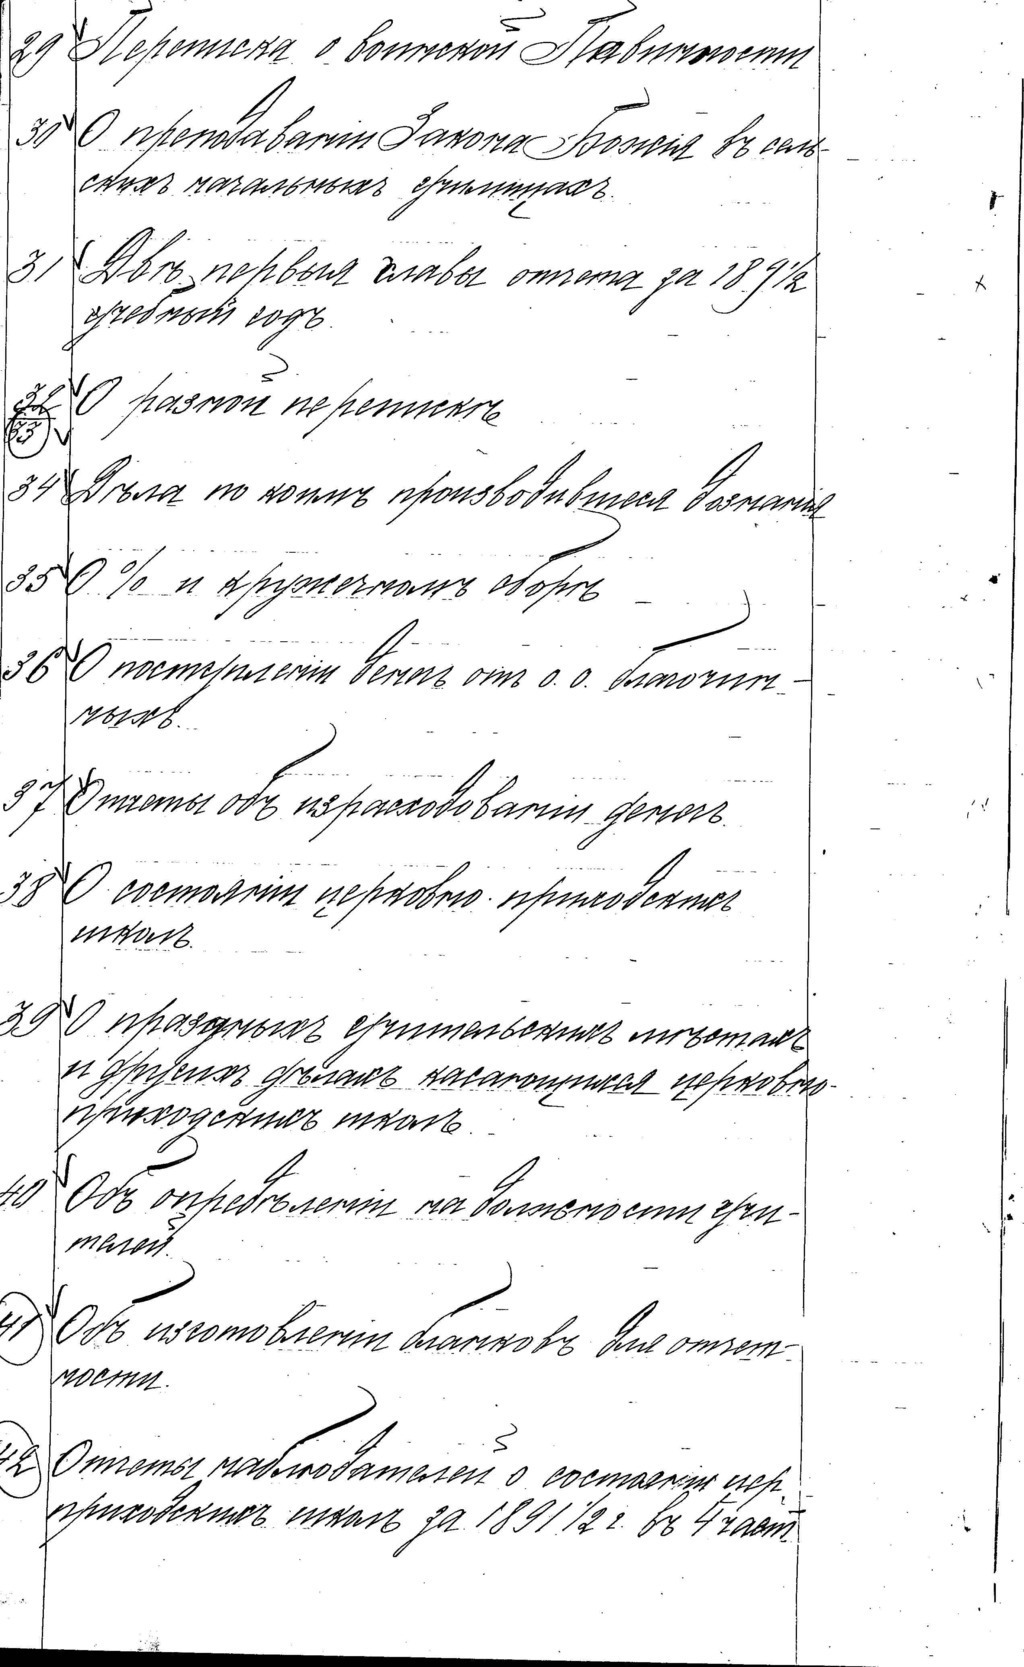 29 Переписка о воинской Павинности
30 О преподаваніи Закона Божія въ сель-
скихъ начальныхъ училищахъ.
31 Двѣ первыя главы отчета за 189½
учебный годъ.
32 О разной перепискѣ
33
34 Дѣла по коимъ производившееся дознанія
35 О % и кружечномъ сборѣ
36 О поступленіи денегъ отъ о.о. благочин-
ныхъ.
37 Отчеты объ израсходованіи денегъ.
38 О состояніи церковно-приходскихъ
школъ.
39 О праздныхъ учительскихъ мѣстахъ
и другихъ дѣлахъ касающихся церковно-
приходскихъ школъ.
40 Объ опредѣленіи на должности учи-
телей.
41 Объ изготовленіи бланковъ для отчет-
ности.
42 Отчеты наблюдателей о состояніи цер.
приходскихъ школъ за 1891/2 г. въ 4 част.